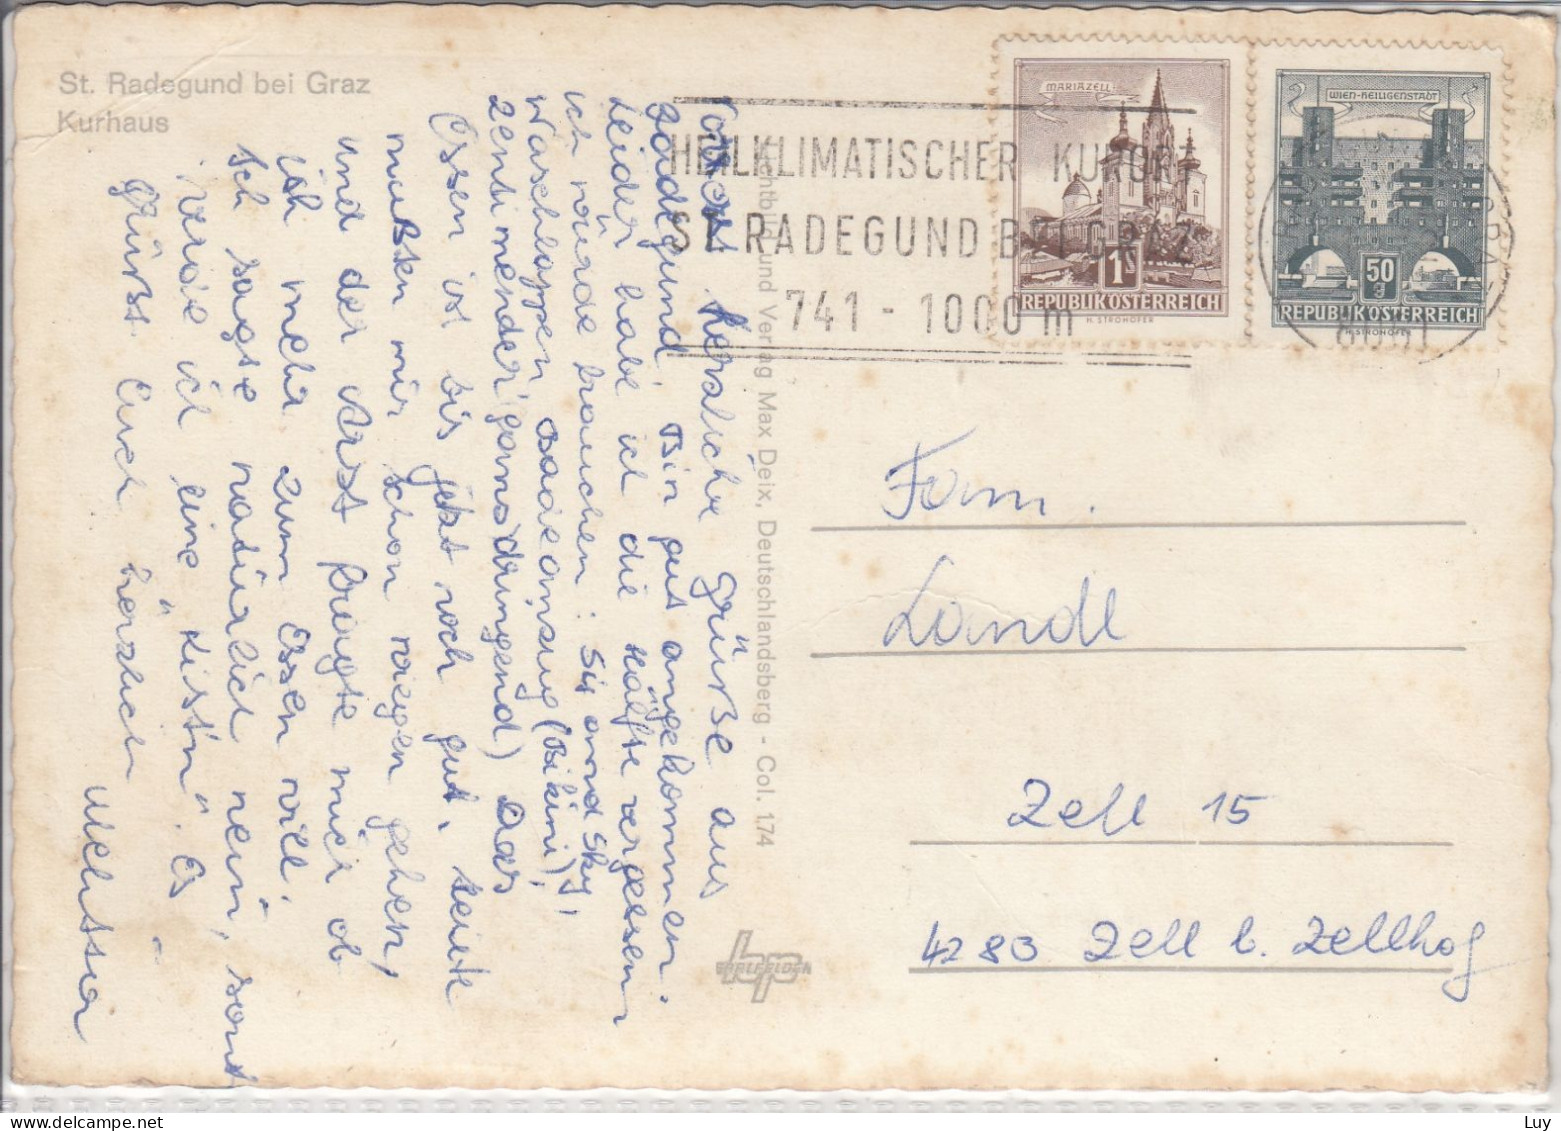 St. Radegund bei Graz
Kurhaus
herzliche Grüße aus
Radegund. Bin gut angekommen.
Leider habe ich die Hälfte vergessen
ich würde brauchen:
Waschlappen, Badeanzug (Bikini),
(ganz dringend) Das
Essen ist bis jetzt noch gut, heute
mußten wir schon wiegen gehen,
und der Arzt fragte mich ob
ich mehr zum Essen will.
Ich sagte natürlich nein, sonst
werde ich eine "Kistn". Es
grüßt Euch herzlich
Melissa
Lichtbild und Verlag Max Deix, Deutschlandsberg - Col. 174
HEILKLIMATISCHER KURORT
ST. RADEGUND BEI GRAZ
741 - 1000 m
MARIAZELL
1 S
REPUBLIK ÖSTERREICH
H. STROHOFER
WIEN-HEILIGENSTADT
50 g
REPUBLIK ÖSTERREICH
H. STROHOFER
8061
Fam.
Landl
Zell 15
4283 Zell b. Zellhof
Luy